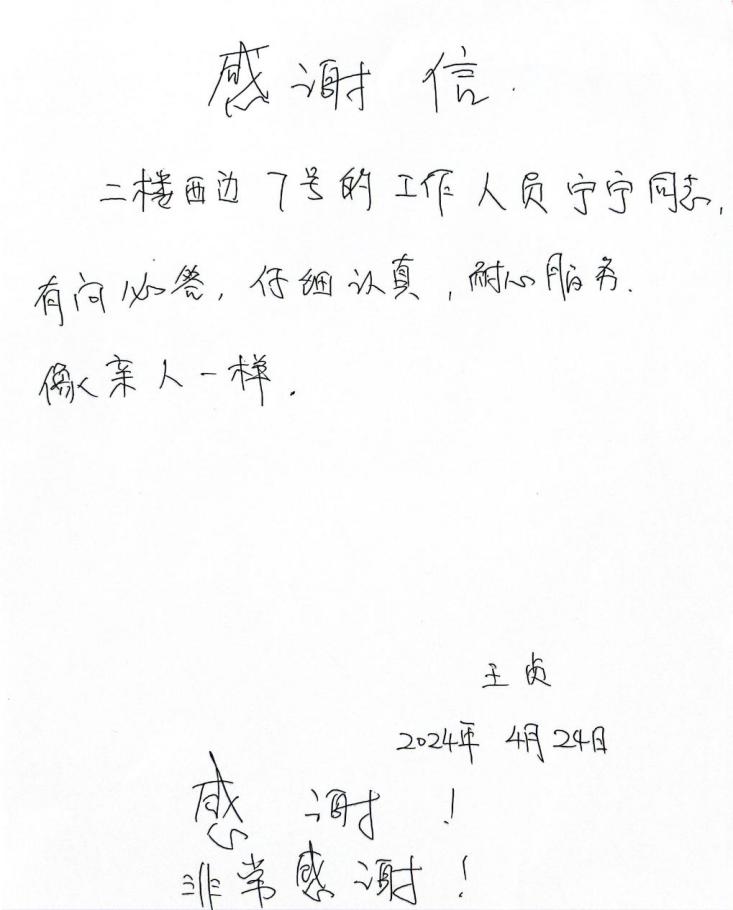 感谢信.
二楼西边7号的工作人员宁宁同志,
有问必答,仔细认真,耐心服务.
像亲人一样.
王贞
2024年4月24日
感谢!
非常感谢!